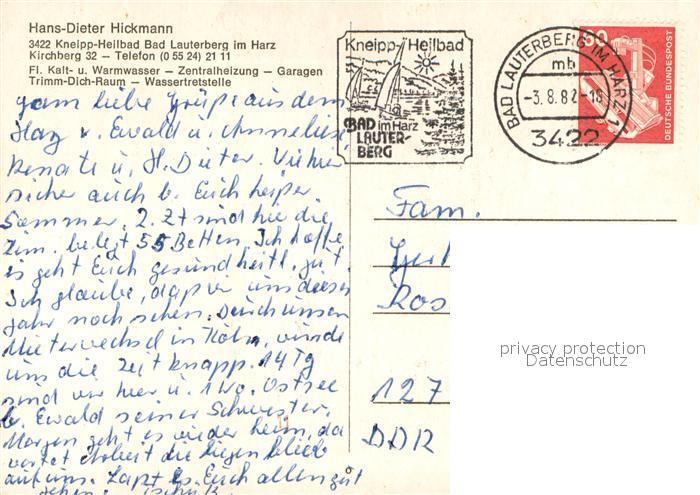 Hans-Dieter Hickmann
3422 Kneipp-Heilbad Bad Lauterberg im Harz
Kirchberg 32 — Telefon (0 55 24) 21 11
Fl. Kalt- u. Warmwasser — Zentralheizung — Garagen
Trimm-Dich-Raum — Wassertretstelle
Kneipp-Heilbad
BAD im Harz
LAUTER-
BERG
BAD LAUTERBERG IM HARZ 1
mb
-3.8.82-18
3422
60
DEUTSCHE BUNDESPOST
ganz liebe Grüße aus dem
Harz v. Ewald u. Anneliese
Renate u. H. Dieter. Wie hier
sicher auch b. Euch heißer
Sommer. 2. Zt sind hier die
Zim. belegt 55 Betten. Ich hoffe
es geht Euch gesundheitl. gut.
Ich glaube, daß wir uns dieses
Jahr noch sehen. Durch unsern
Mieterwechsel in Köln, wurde
uns die Zeit knapp. 14 Tg
sind wir hier u. 1 Wo. Ostsee
b. Ewald seiner Schwester.
Morgen geht es wieder heim, da
wartet Arbeit die liegen blieb
auf uns. Laßt es Euch allen gut
gehen.
Fam.
Ros
127
DDR
privacy protection
Datenschutz